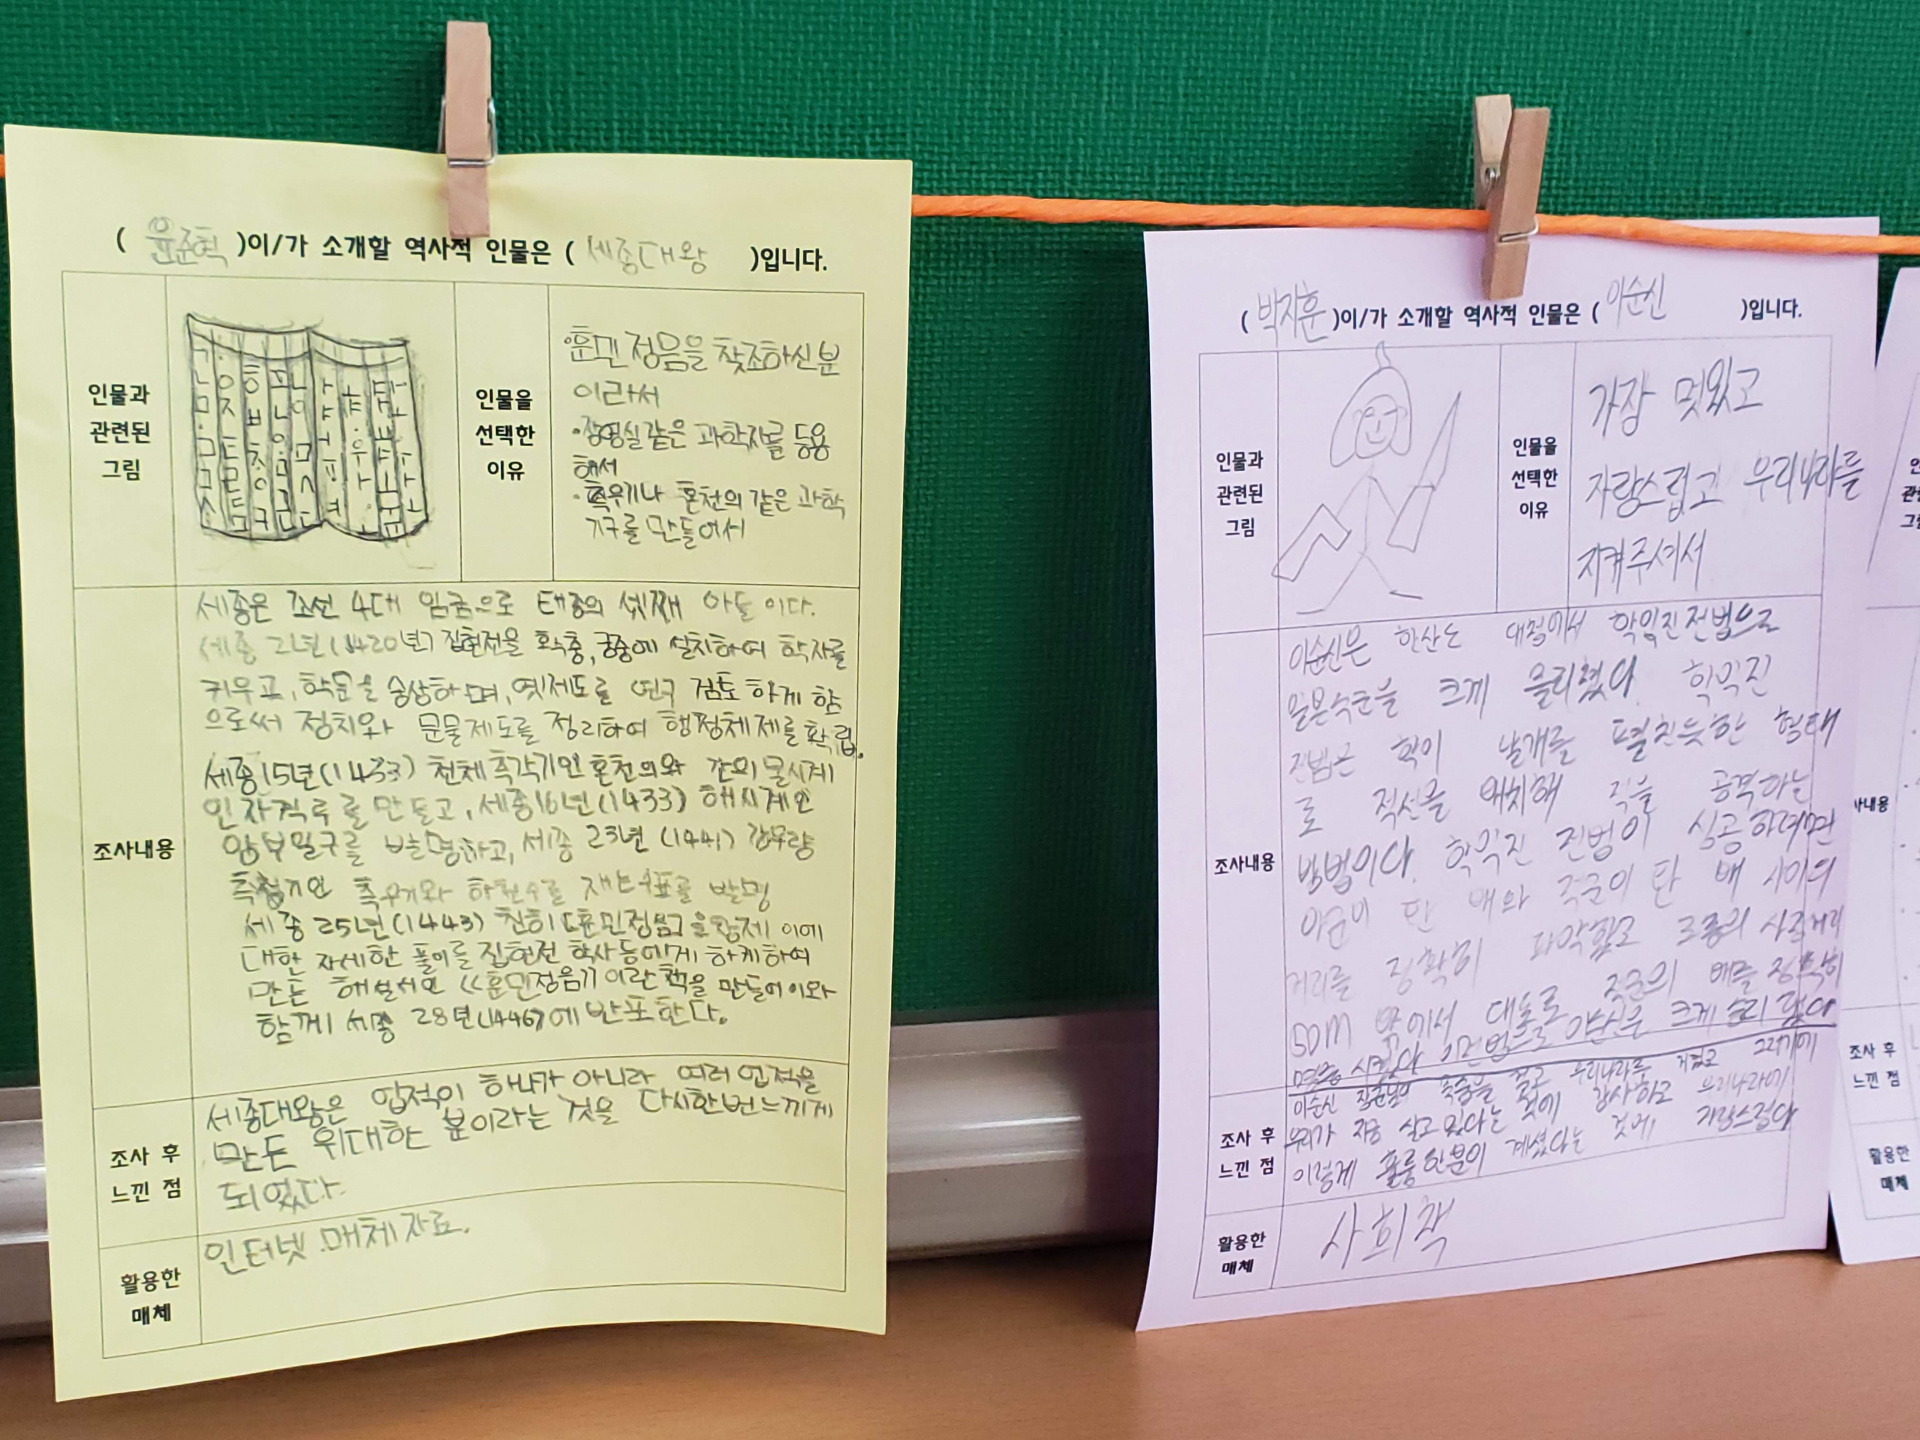 ( 윤준혁 )이/가 소개할 역사적 인물은 ( 세종대왕 )입니다.
인물과
관련된
그림
인물을
선택한
이유
훈민정음을 창조하신분
이라서
·장영실같은 과학자를 등용
해서
·측우기나 혼천의 같은 과학
기구를 만들어서
조사내용
세종은 조선 4대 임금으로 태종의 셋째 아들이다.
세종 2년(1420년) 집현전을 확충, 궁중에 설치하여 학자를
키우고, 학문을 숭상하며, 옛제도를 연구 검토 하게 함
으로써 정치와 문물제도를 정리하여 행정체제를 확립.
세종15년(1433) 천체측각기인 혼천의와 간의 물시계
인 자격루를 만들고, 세종16년(1433) 해시계인
앙부일구를 발명하고, 세종 23년 (1441) 강우량
측정기인 측우기와 하천수를 재는 수표를 발명
세종 25년(1443) 친히 훈민정음을 창제 이에
대한 자세한 풀이를 집현전 학사들에게 하게하여
만든 해설서인 <<훈민정음>>이란 책을 만들어 이와
함께 세종 28년(1446)에 반포한다.
조사 후
느낀 점
세종대왕은 업적이 하나가 아니라 여러 업적을
만든 위대한 분이라는 것을 다시한번느끼게
되었다.
활용한
매체
인터넷 매체자료.
( 박지훈 )이/가 소개할 역사적 인물은 ( 이순신 )입니다.
인물과
관련된
그림
인물을
선택한
이유
가장 멋있고
자랑스럽고 우리나라를
지켜주셔서
조사내용
이순신은 한산도 대첩에서 학익진전법으로
일본수군을 크게 물리쳤다. 학익진
진법은 학이 날개를 펼친듯한 형태
로 적선을 배치해 적을 공격하는
방법이다. 학익진 진법이 성공하려면
아군이 탄 배와 적군이 탄 배 사이의
거리를 정확히 파악할고 사로거리
50m 밖에서 대포로 적군의 배를 정확히
명중 시켰다 이런법으로 이순신은 크게 승리 했다
조사 후
느낀 점
이순신 장군님이 우리나라를 지켰고 그러기에
우리가 지금 살고 있다는 것에 감사하고 우리나라에
이렇게 훌륭한분이 계셨다는 것에 자랑스럽다
활용한
매체
사회책
사내용
조사 후
느낀 점
활용한
매체